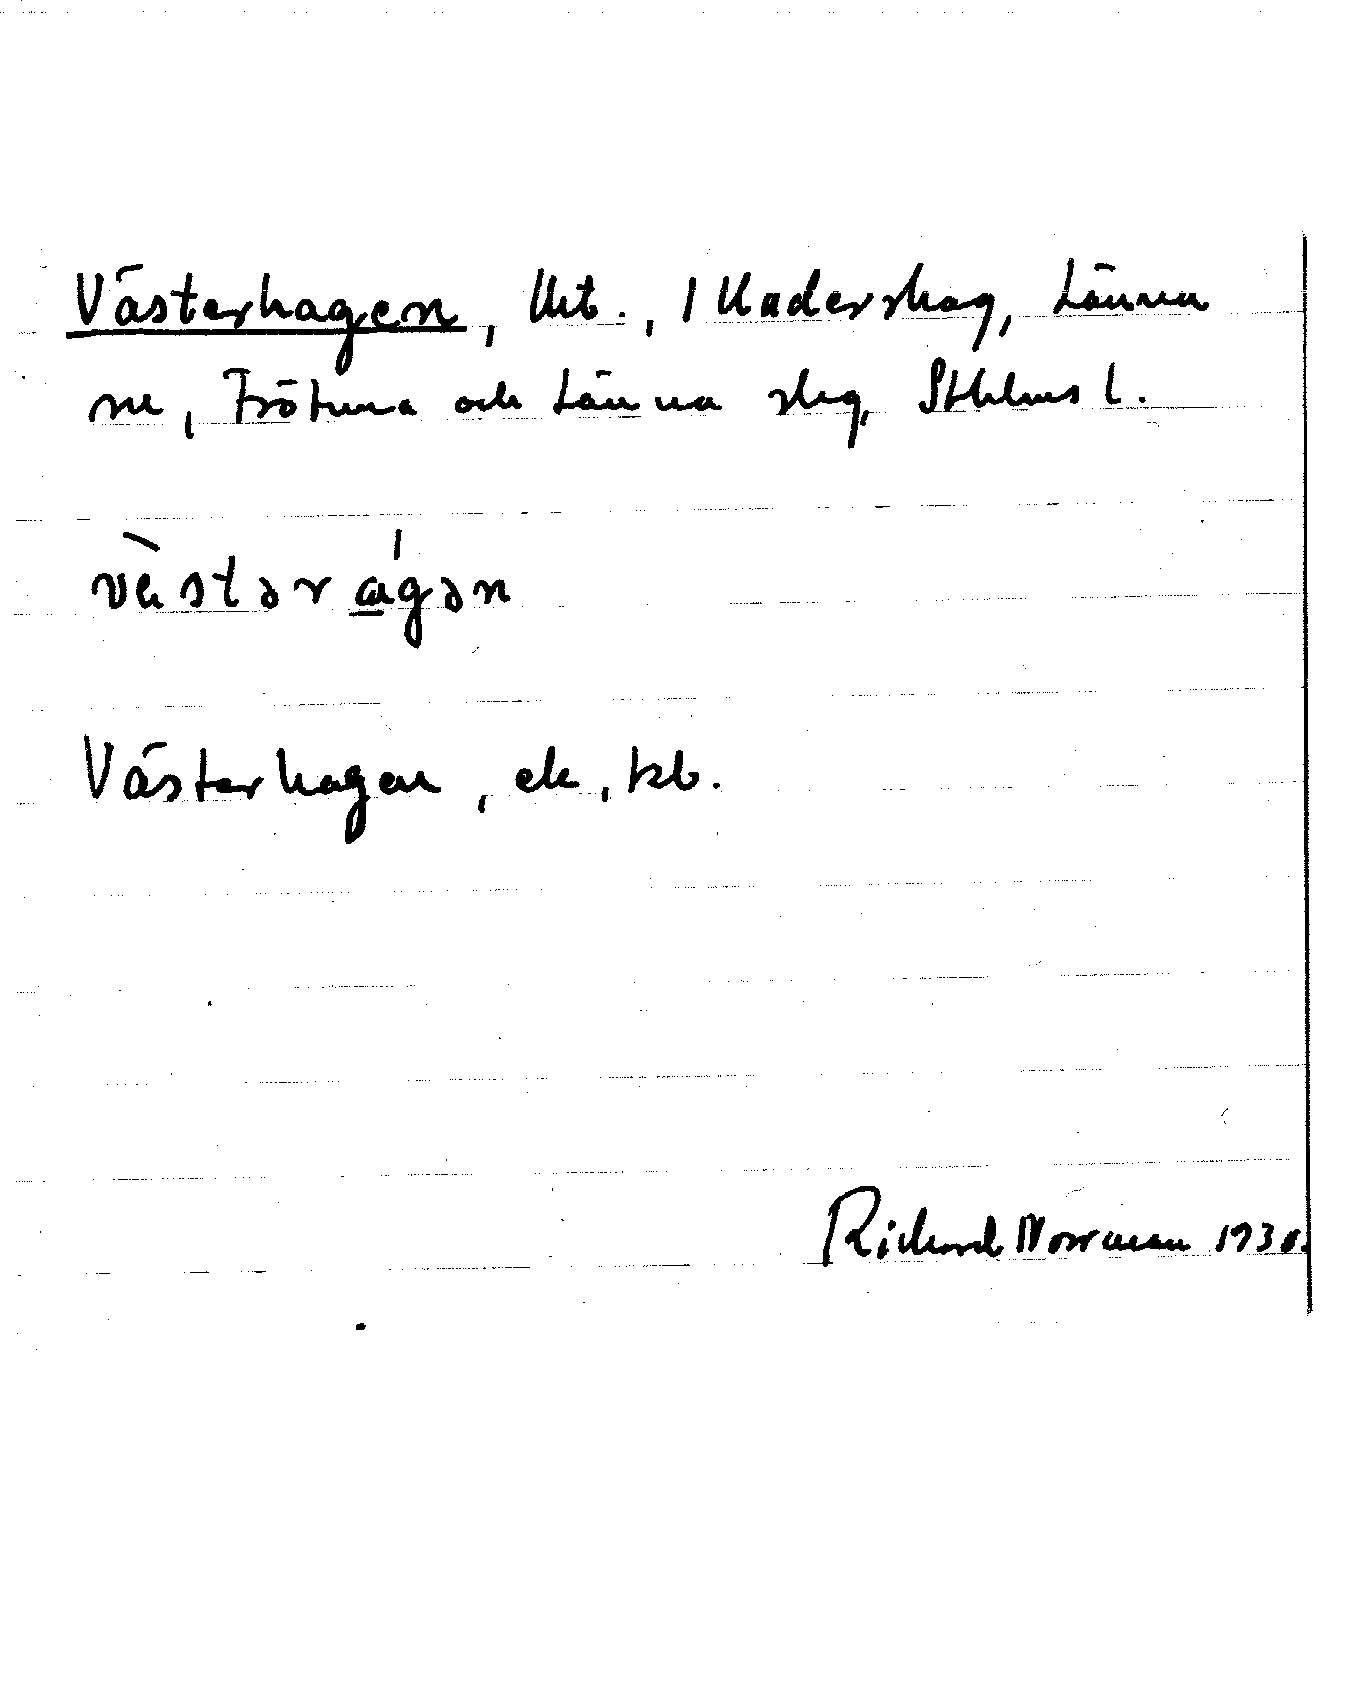 Västerhagen, lht., 1 Kaderskag, Länna
sn, Frötuna och Länna slg, Sthlms l.
västərɑgən
Västerhagen, ek, kb.
Richard Norrman 1930.